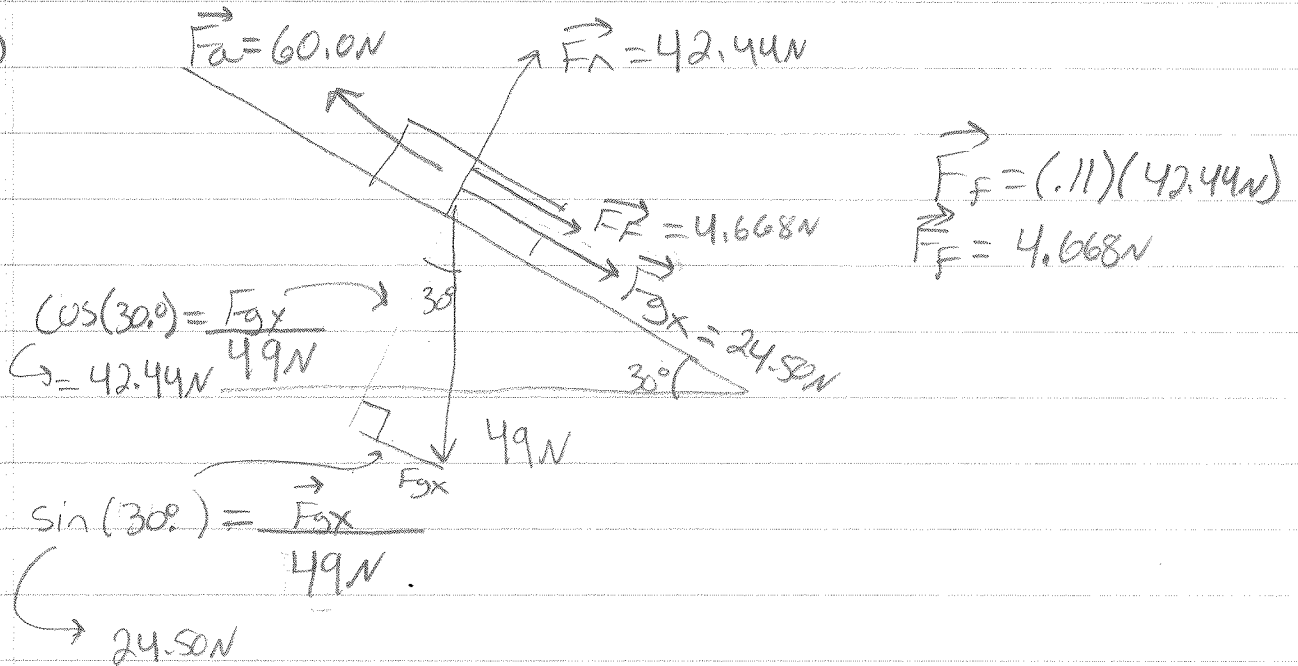 )
Fa = 60.0N
Fn = 42.44N
FF = (.11)(42.44N)
FF = 4.668N
FF = 4.668N
30°
Fgx = 24.50N
cos(30.°) = Fgx
49N
= 42.44N
30°
49N
Fgx
sin(30.°) = Fgx
49N
24.50N